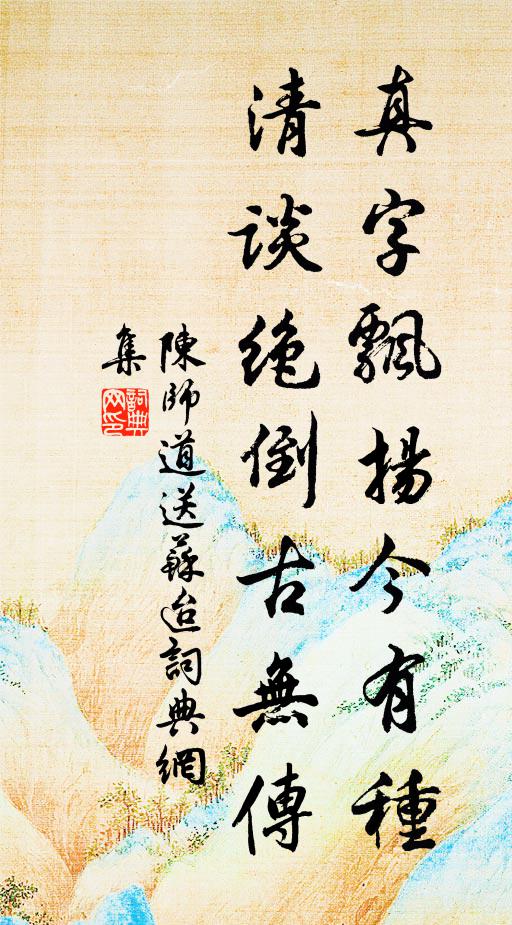 真字飄揚今有種
清談絶倒古無傳
陳師道送蘇迨詞典網
集
詞典
网印